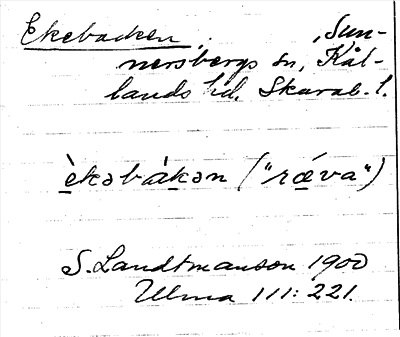 Ekebacken, Sun-
nersbergs sn, Kål-
lands hd. Skarab. l.
èkəbàkən ("rǽva")
S. Landtmanson 1900
Ulma 111: 221.